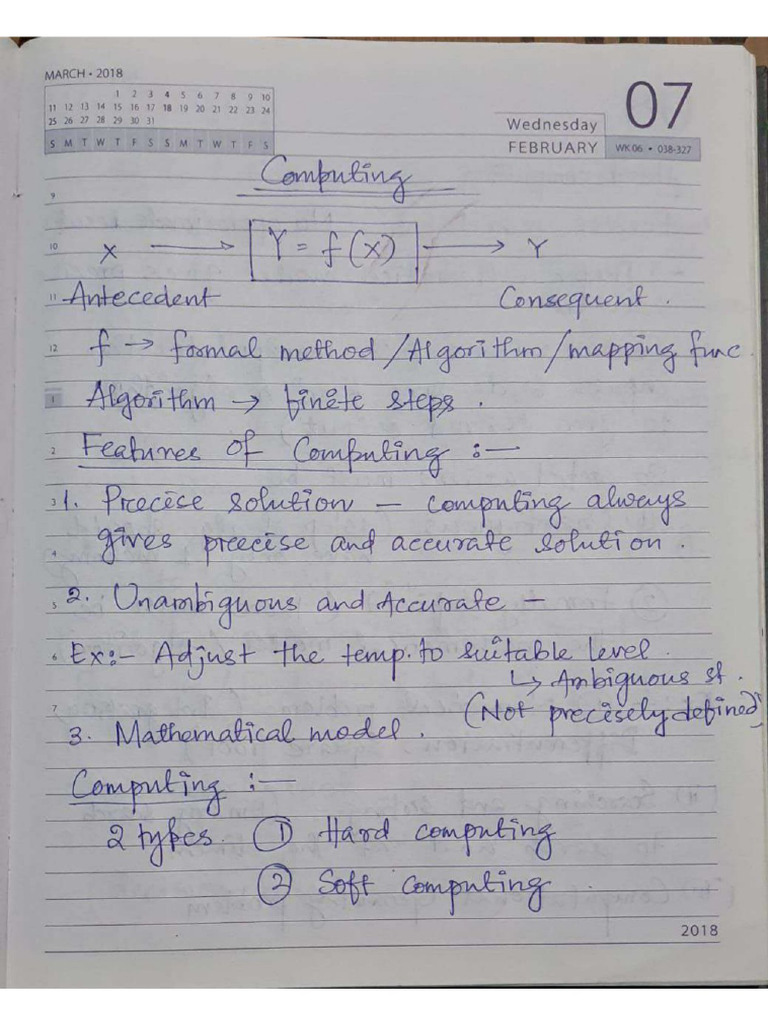 MARCH • 2018
1 2 3 4 5 6 7 8 9 10
11 12 13 14 15 16 17 18 19 20 21 22 23 24
25 26 27 28 29 30 31
S M T W T F S S M T W T F S
07
Wednesday
FEBRUARY WK 06 • 038-327
Computing
9
10 X → Y = f(x) → Y
11 Antecedent Consequent.
12 f → formal method / Algorithm / mapping func
1 Algorithm → finite steps.
2 Features of Computing :—
3 1. Precise solution — computing always
gives precise and accurate solution.
4
5 2. Unambiguous and Accurate —
6 Ex:- Adjust the temp. to suitable level.
↳ Ambiguous st.
7 (Not precisely defined)
3. Mathematical model.
Computing :—
2 types. ① Hard computing
② Soft computing
2018